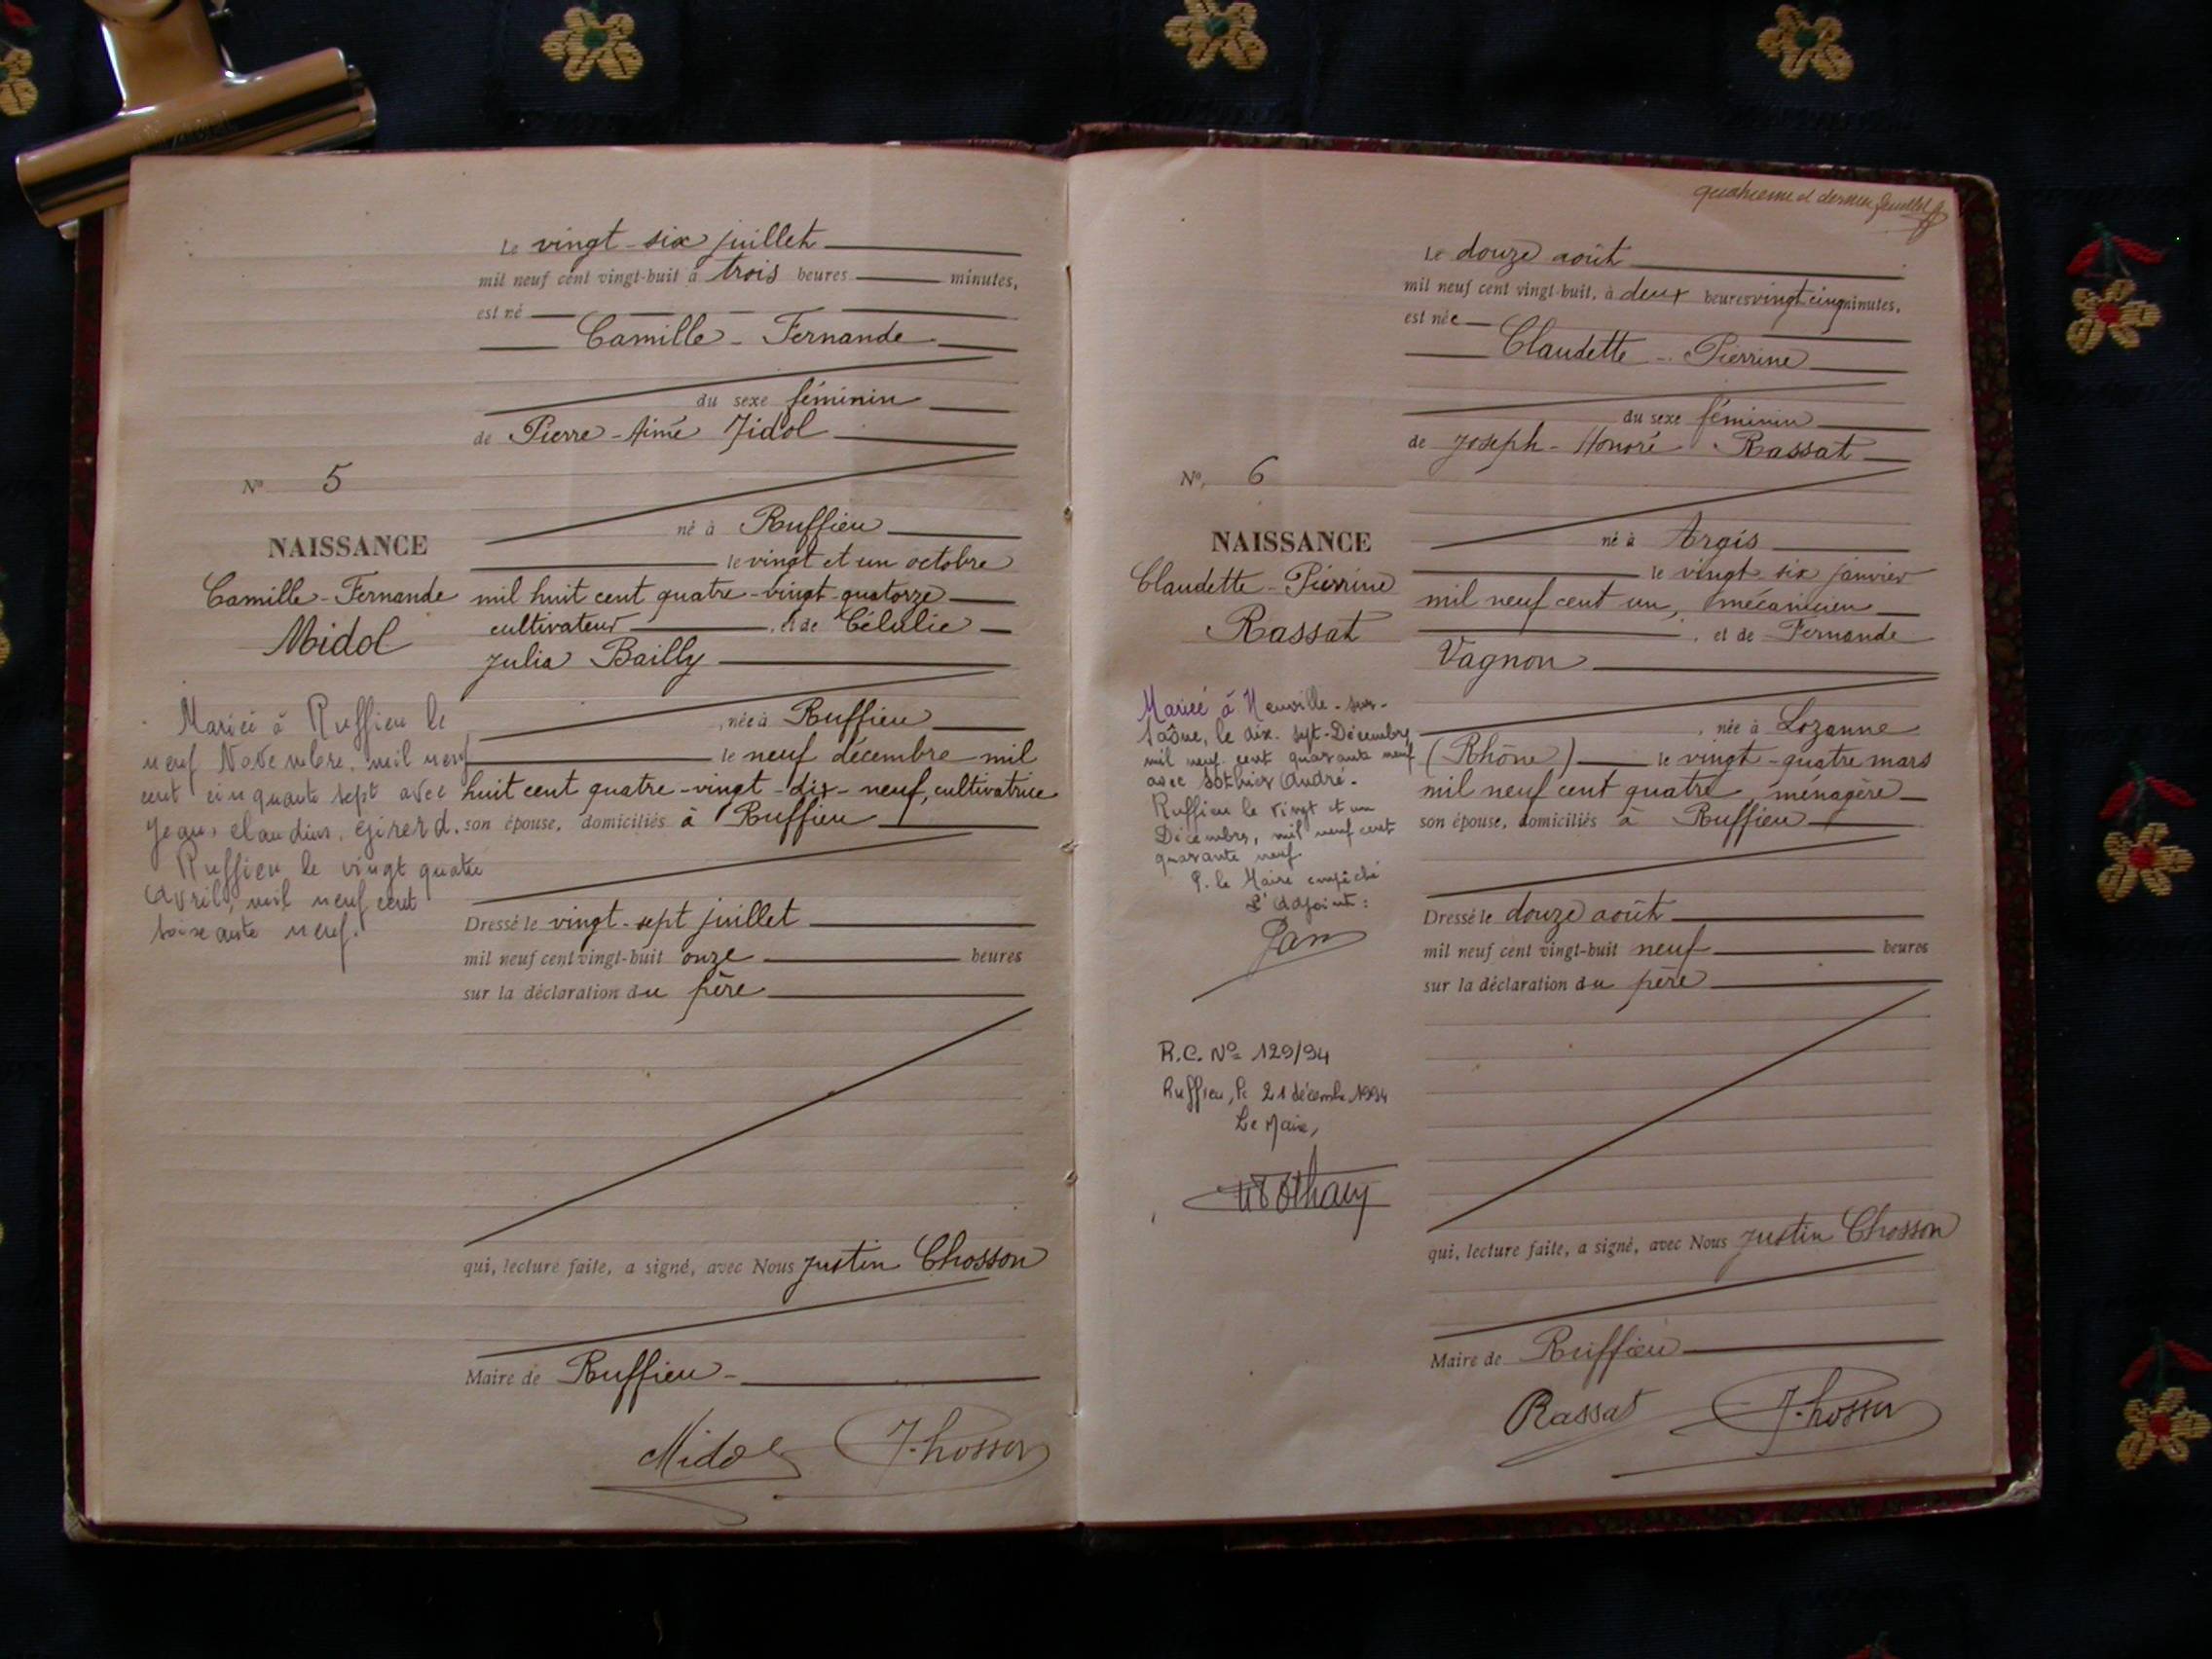 Le vingt-six juillet
mil neuf cent vingt-huit à trois heures minutes,
est né
Camille - Fernande
du sexe féminin
de Pierre-Aimé Midol
N° 5
né à Ruffieu
NAISSANCE
le vingt et un octobre
Camille-Fernande
mil huit cent quatre-vingt-quatorze
Midol
cultivateur , et de Célulie
Julia Bailly
Mariée à Ruffieu le
neuf Novembre, mil neuf
cent cinquante sept avec
Jean, Claudius, Girerd.
Ruffieu le vingt quatre
Avril, mil neuf cent
soixante neuf.
, née à Ruffieu
le neuf décembre mil
huit cent quatre-vingt-dix-neuf, cultivatrice
son épouse, domiciliés à Ruffieu
Dressé le vingt-sept juillet
mil neuf cent vingt-huit onze heures
sur la déclaration du père
qui, lecture faite, a signé, avec Nous Justin Chosson
Maire de Ruffieu
Midol J. Chosson
quatrieme et dernier feuillet
Le douze août
mil neuf cent vingt-huit, à deux heures vingt cinq minutes,
est née
Claudette - Pierrine
du sexe féminin
de Joseph-Honoré Rassat
N°, 6
né à Argis
NAISSANCE
le vingt-six janvier
Claudette-Pierrine
mil neuf cent un, mécanicien
Rassat
, et de Fernande
Vagnon
Mariée à Neuville-sur-
Saône, le dix-sept-Décembre
mil neuf cent quarante neuf
avec Sothier André.
Ruffieu le vingt et un
Décembre, mil neuf cent
quarante neuf.
P. le Maire empêché
L'Adjoint:
R.C. N° 129/94
Ruffieu, le 21 décembre 1994
Le Maire,
, née à Lozanne
(Rhône) le vingt-quatre mars
mil neuf cent quatre, ménagère
son épouse, domiciliés à Ruffieu
Dressé le douze août
mil neuf cent vingt-huit neuf heures
sur la déclaration du père
qui, lecture faite, a signé, avec Nous Justin Chosson
Maire de Ruffieu
Rassat J. Chosson